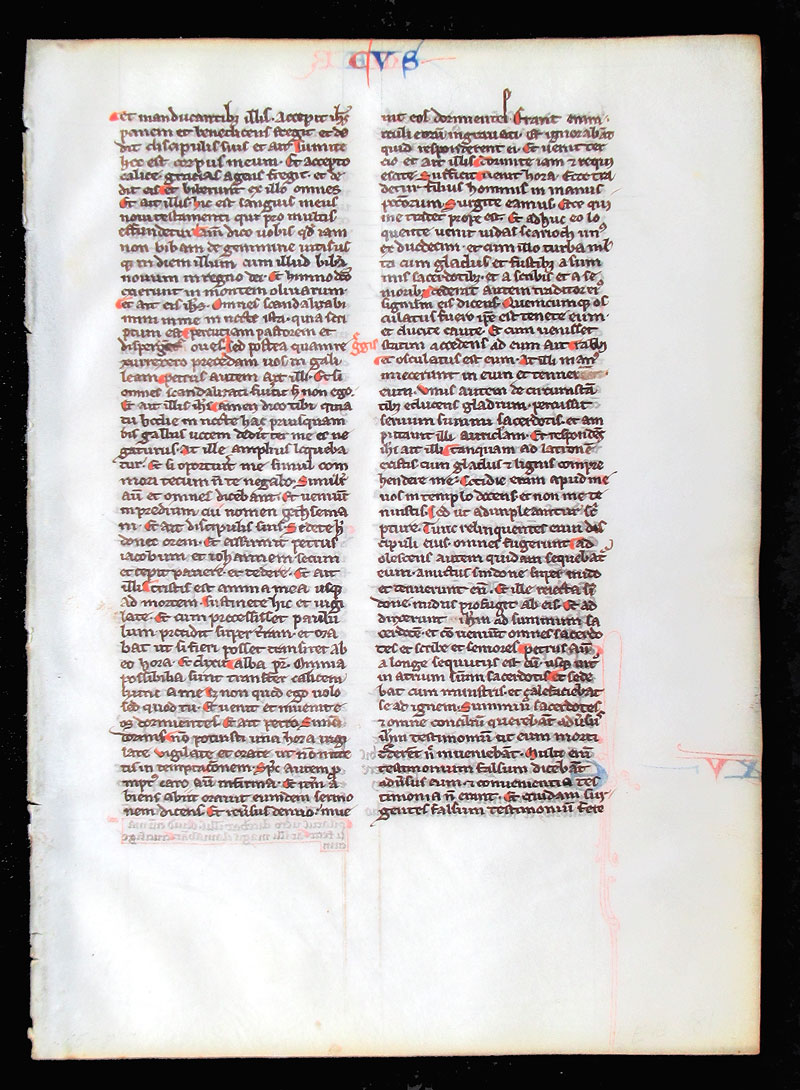 CVS
et manducantibȝ illis. Accepit ihs̄
panem et benedicens fregit et de
dit discipulis suis et ait Sumite
hoc est corpus meum. Et accepto
calice gratias agens fregit. et de
dit eis et biberunt ex illo omnes
Et ait illis hic est sanguis meus
noui testamenti qui pro multis
effundetur Am̄ dico uobis qd̄ iam
non bibam de genimine uitis us
qȝ in diem illum cum illud bibā
nouum in regno dei. Et himno dc̄o
exierunt in montem oliuarum
et ait eis ihs̄. Omnes scandalizabi
mini in me in nocte ista. quia scri
ptum est percutiam pastorem et
disperges oues Sed postea quam re
surrexero precedam uos in gali
leam Petrus autem ait illi. Et si
omnes scandalizati fuerīt sȝ non ego.
Et ait illis ihs̄ Amen dico tibi quia
tu hodie in nocte hac priusquam
bis gallus uocem dederit ter me es ne
gaturus. At ille amplius loqueba
tur. Et si oportuerit me simul com
mori tecum n̄ te negabo. Similiter
aū et omnes dicebant. Et ueniunt
in predium cui nomen gethsema
ni. Et ait discipulis suis Sedete hic
donec orem. Et assumit petrus
iacobum et iohannem secum
et cepit pauere et tedere. Et ait
illis Tristis est anima mea usqȝ
ad mortem Sustinete hic et uigi
late. Et cum precessisset paulu
lum procidit super terram. et ora
bat ut si fieri posset transiret ab
eo hora. Et dixit Abba pr̄. Omnia
possibilia sunt transfer calicem
hunc a me Sȝ non quod ego uolo
sed quod tu. Et uenit et inuenit e
os dormientes Et ait petro. Simon
dormis nō potuisti una hora uigi
late. vigilate et orate ut nō intre
tis in temptationem. Spc̄ autem p
mptꝰ caro aū infirma. Et iterū a
biens abiit orauit eundem sermo
nem dicens Et reuersus denuo. inue
nit eos dormientes Erant enim
oculi eorū ingrauati. Et ignorabāt
quid responderent ei. Et uenit ter
cio et ait illis dormite iam et requi
escite. Sufficit uenit hora. Ecce tra
detur filius hominis in manus
peccatorum. Surgite eamus. Ecce qui
me tradet prope est. Et adhuc eo lo
quente uenit iudas scarioth unꝰ
ex duodecim. et cum illo turba mul
ta cum gladiis et fustibȝ a sum
mis sacerdotibȝ. et a scribis et a se
nioribȝ dederat autem traditor eiꝰ
signum eis dicens. Quemcumqȝ os
culatus fuero ipse est tenete eum
et ducite caute. Et cum uenisset
statim accedens ad eum ait rabi
et osculatus est eum. At illi manꝰ
iniecerunt in eum et tenuerunt
eum. Vnus autem de circumstā
tibȝ educens gladium. percussit
seruum summi sacerdotis. et am
putauit illi auriculam. Et respondens
ihs̄ ait illis Tanquam ad latronē
existis cum gladiis et lignis compre
hendere me. Cotidie eram apud me
uos in templo docens et non me te
nuistis Sed ut adimpleantur scr
pture. Tunc relinquentes eum dis
cipuli eius omnes fugerunt Ad
olescens autem quidam sequebat
eum. amictus sindone super nudo
et tenuerunt eū. At ille reiecta si
done. nudus profugit ab eis. Et ad
duxerunt ihm̄ ad summum sa
cerdotē. et cōueniūt omnes sacerdo
tes et scribe et seniores Petrus aū
a longe sequutus est eū usqȝ int
in atrium summi sacerdotis et sede
bat cum ministris et calefaciebat
se ad ignem. Summi ū sacerdotes
et omne concilium querebāt aduersus
ihm̄ testimonium ut eum morti
traderent n̄ inueniebāt. Multi enī
testimonium falsum dicebāt
aduersus eum. et conuenientia tes
timonia n̄ erant. Et quidam sur
gentes falsum testimoniū fere
XV